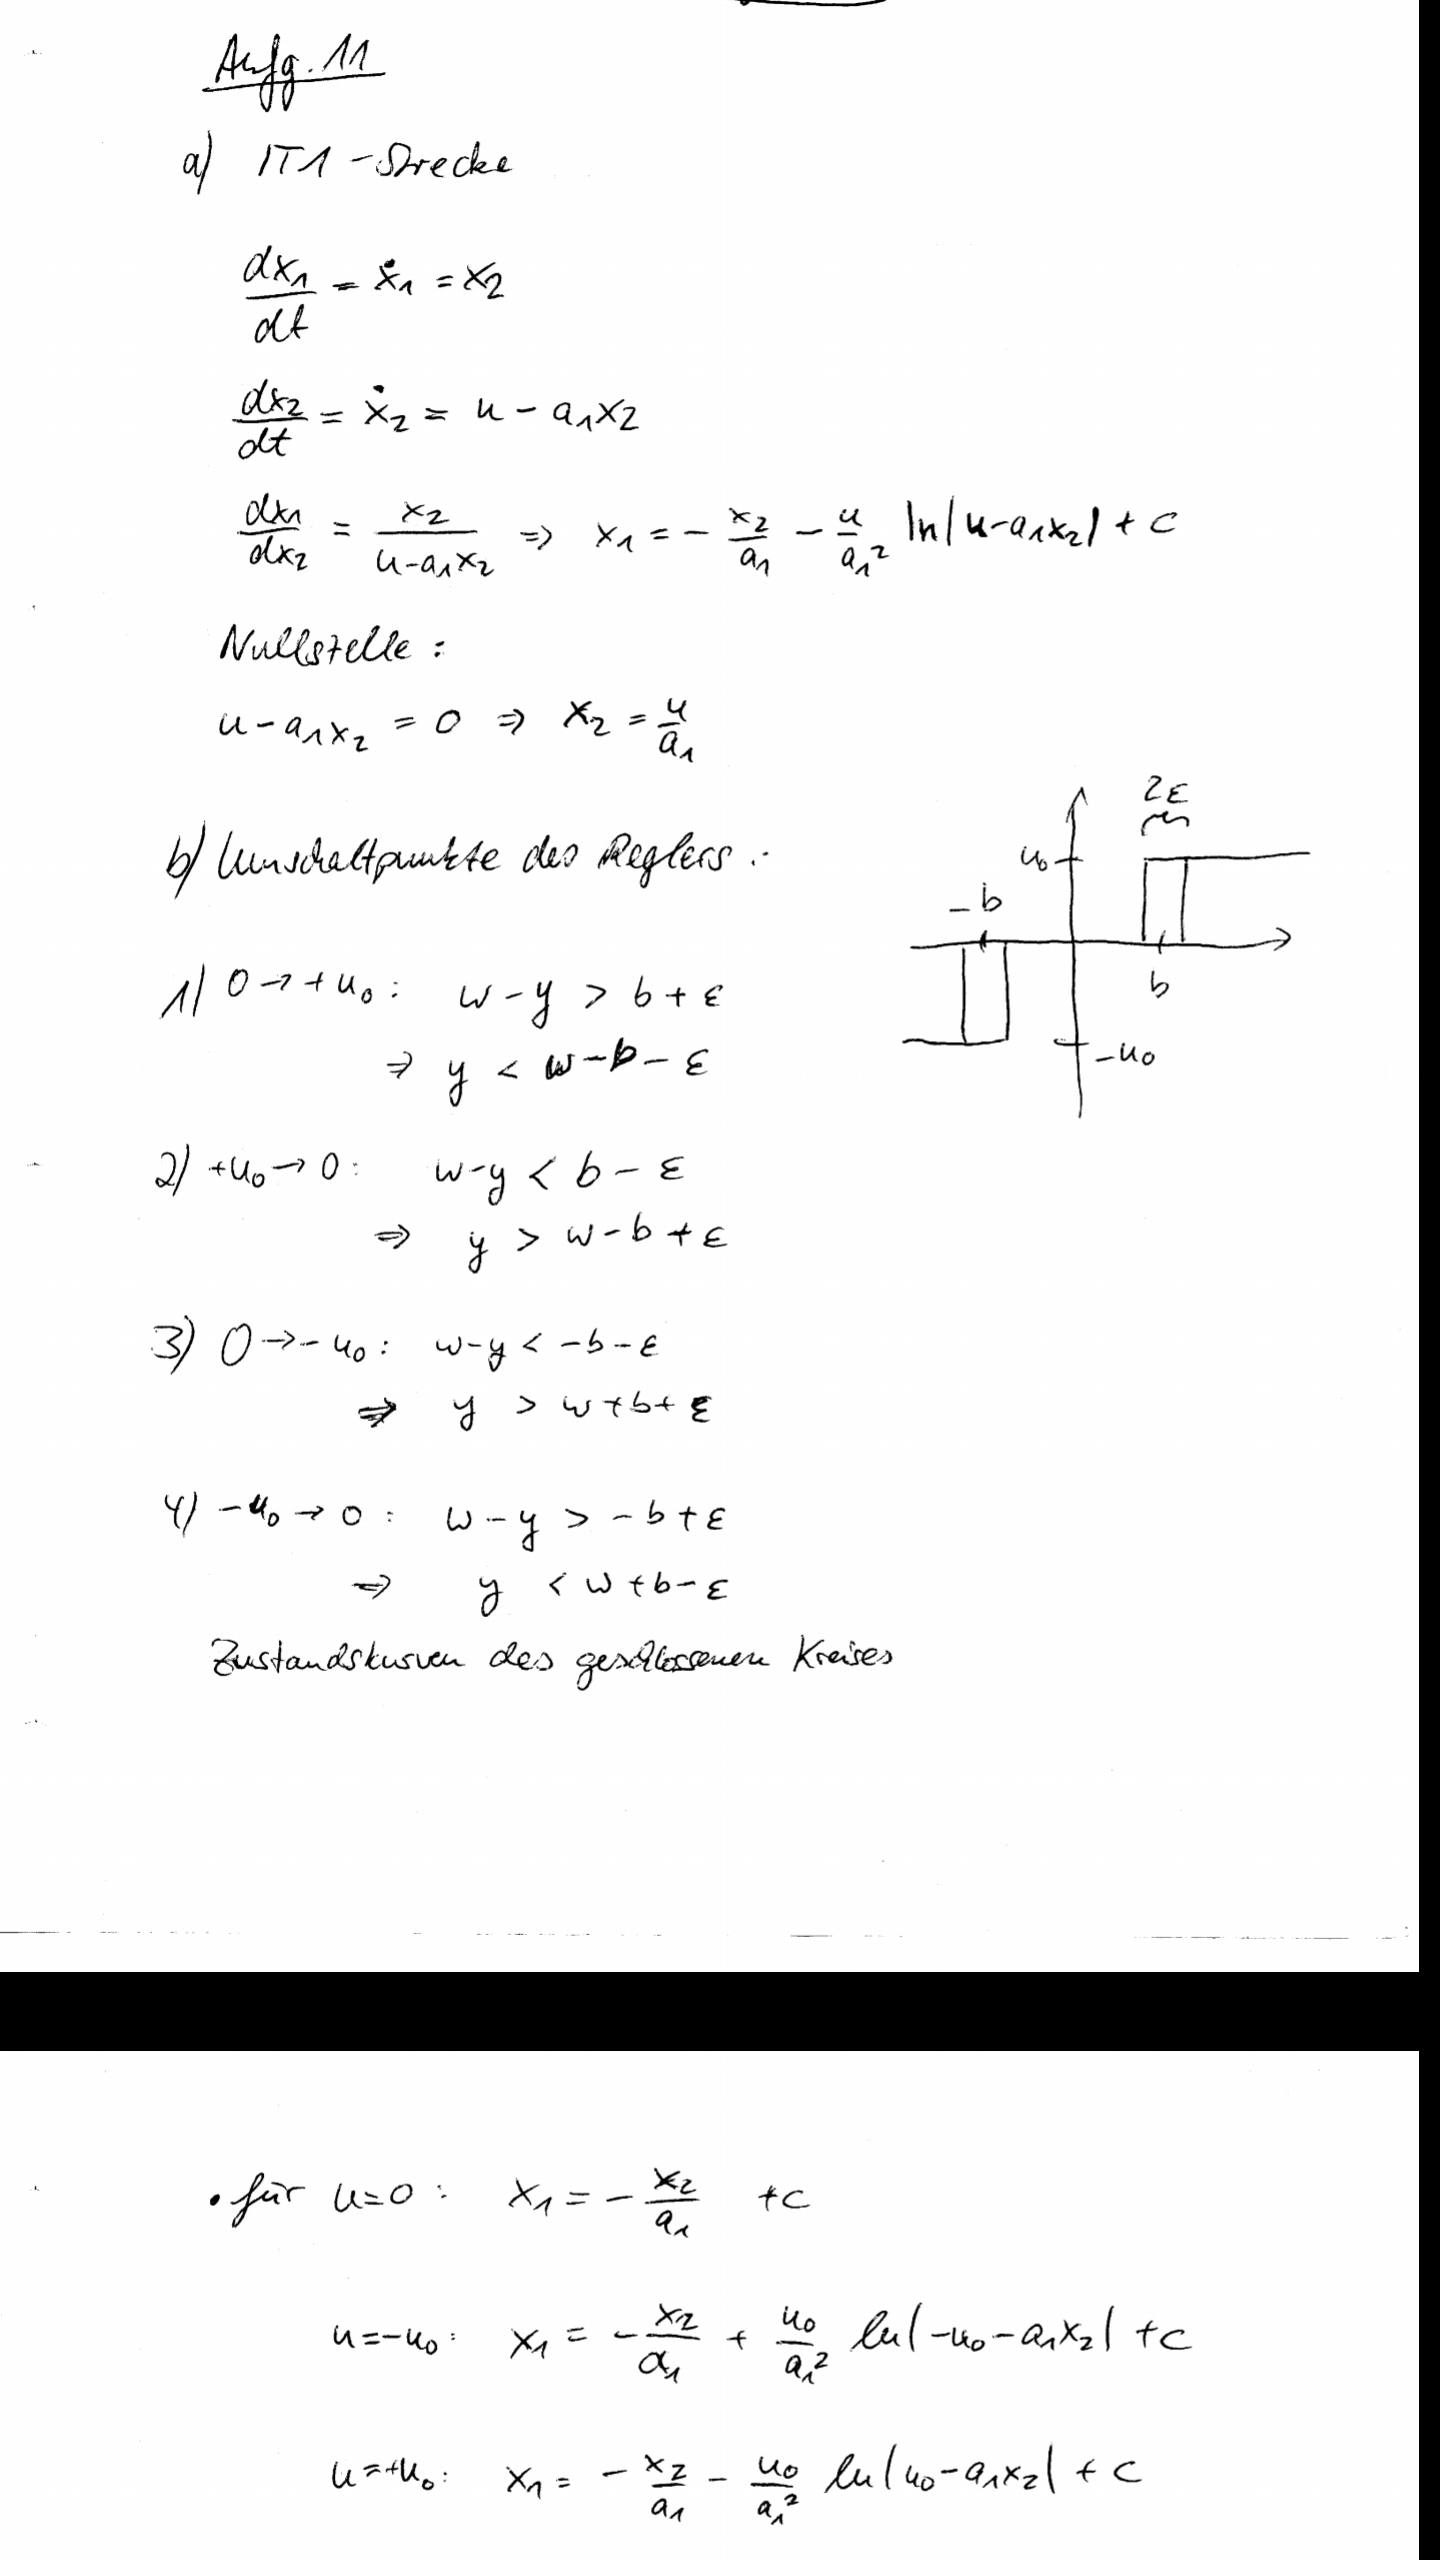 Aufg. 11
a) IT1-Strecke
dx₁/dt = ẋ₁ = x₂
dx₂/dt = ẋ₂ = u - a₁x₂
dx₁/dx₂ = x₂/(u-a₁x₂) ⇒ x₁ = - x₂/a₁ - u/a₁² ln|u-a₁x₂| + c
Nullstelle:
u-a₁x₂ = 0 ⇒ x₂ = u/a₁
b) Umschaltpunkte des Reglers:
2ε
u₀
-b
b
-u₀
1) 0 → +u₀: w-y > b+ε
⇒ y < w-b-ε
2) +u₀ → 0: w-y < b-ε
⇒ y > w-b+ε
3) 0 → -u₀: w-y < -b-ε
⇒ y > w+b+ε
4) -u₀ → 0: w-y > -b+ε
⇒ y < w+b-ε
Zustandskurven des geschlossenen Kreises
• für u=0: x₁ = - x₂/a₁ + c
u=-u₀: x₁ = - x₂/a₁ + u₀/a₁² ln|-u₀-a₁x₂| + c
u=+u₀: x₁ = - x₂/a₁ - u₀/a₁² ln|u₀-a₁x₂| + c